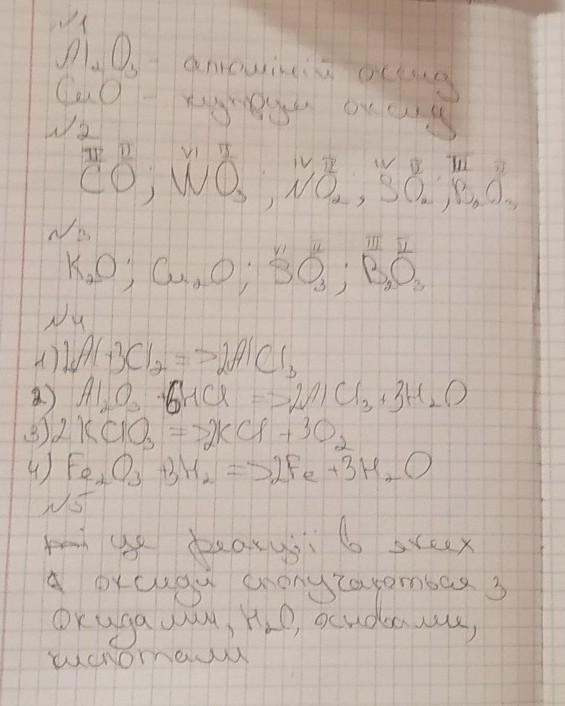 №1
Al₂O₃ - алюміній оксид
CuO - купрум оксид
№2
III II VI II IV II IV II III II
CO; WO₃; NO₂; SO₂; B₂O₃
№3
VI II III II
K₂O; Cu₂O; SO₃; B₂O₃
№4
1) 2Al+3Cl₂ => 2AlCl₃
2) Al₂O₃ + 6HCl => 2AlCl₃+3H₂O
3) 2KClO₃ => 2KCl + 3O₂
4) Fe₂O₃ + 3H₂ => 2Fe + 3H₂O
№5
це реакції в яких
оксиди сполучаються з
окидами, H₂O, основами,
кислотами